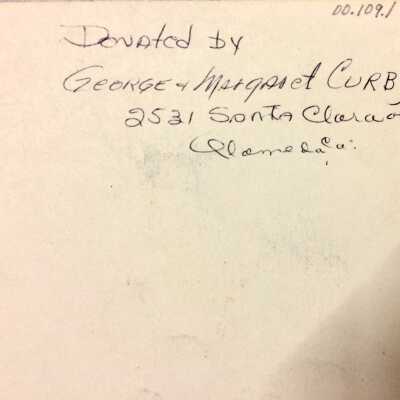 00.109.1
Donated by
George + Margaret Curb
2521 Santa Clara
Alameda Ca.